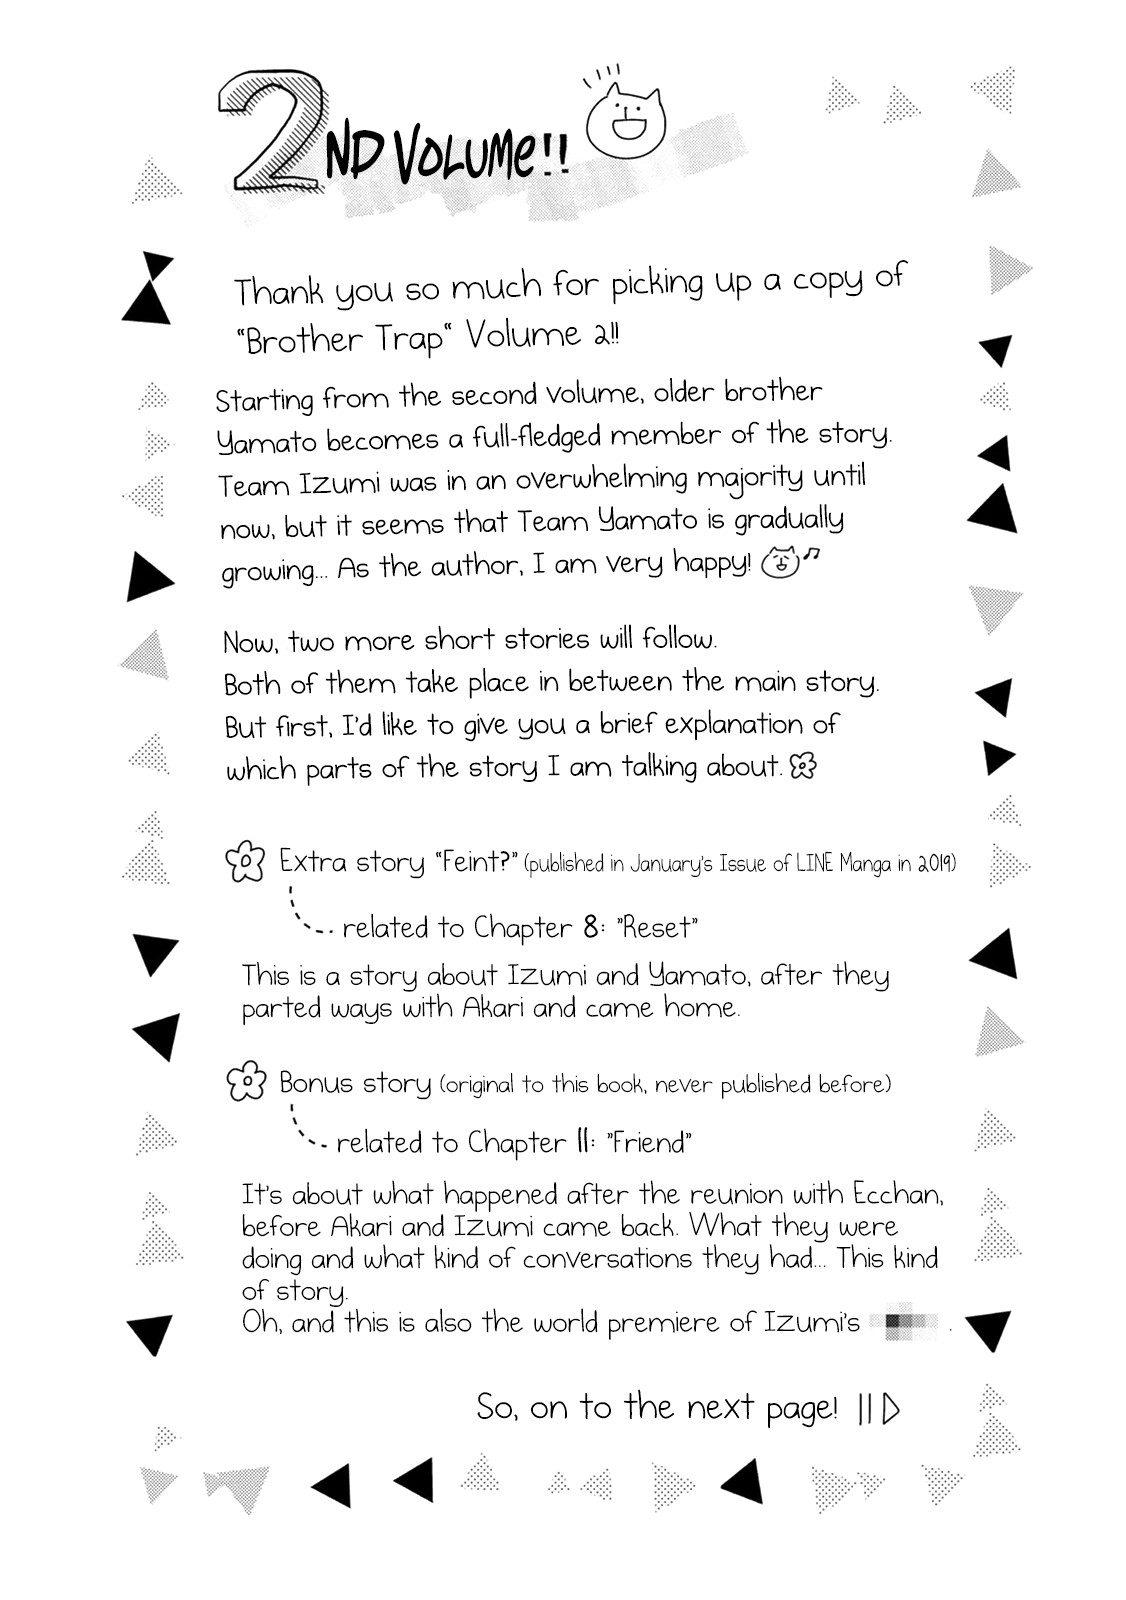 2ND VOLUME!!
Thank you so much for picking up a copy of
"Brother Trap" Volume 2!!
Starting from the second volume, older brother
Yamato becomes a full-fledged member of the story.
Team Izumi was in an overwhelming majority until
now, but it seems that Team Yamato is gradually
growing... As the author, I am very happy! ♫
Now, two more short stories will follow.
Both of them take place in between the main story.
But first, I'd like to give you a brief explanation of
which parts of the story I am talking about.
Extra story "Feint?" (published in January's Issue of LINE Manga in 2019)
related to Chapter 8: "Reset"
This is a story about Izumi and Yamato, after they
parted ways with Akari and came home.
Bonus story (original to this book, never published before)
related to Chapter 11: "Friend"
It's about what happened after the reunion with Ecchan,
before Akari and Izumi came back. What they were
doing and what kind of conversations they had... This kind
of story.
Oh, and this is also the world premiere of Izumi's .
So, on to the next page!